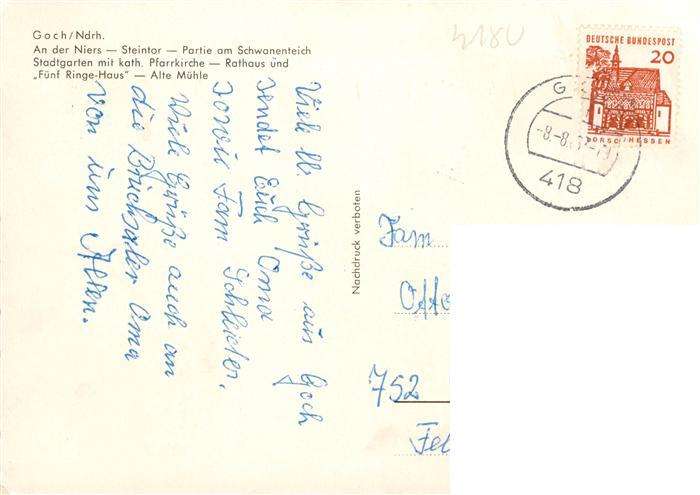 Goch/Ndrh.
An der Niers — Steintor — Partie am Schwanenteich
Stadtgarten mit kath. Pfarrkirche — Rathaus und
„Fünf Ringe-Haus" — Alte Mühle
4180
DEUTSCHE BUNDESPOST
20
LORSCH/HESSEN
-8.-8.
418
Viele lb. Grüße aus Goch
sendet Euch Oma
sowie Fam
Viele Grüße auch an
die Bruchsaler Oma
von uns Allen.
Nachdruck verboten
Fam
Otto
752